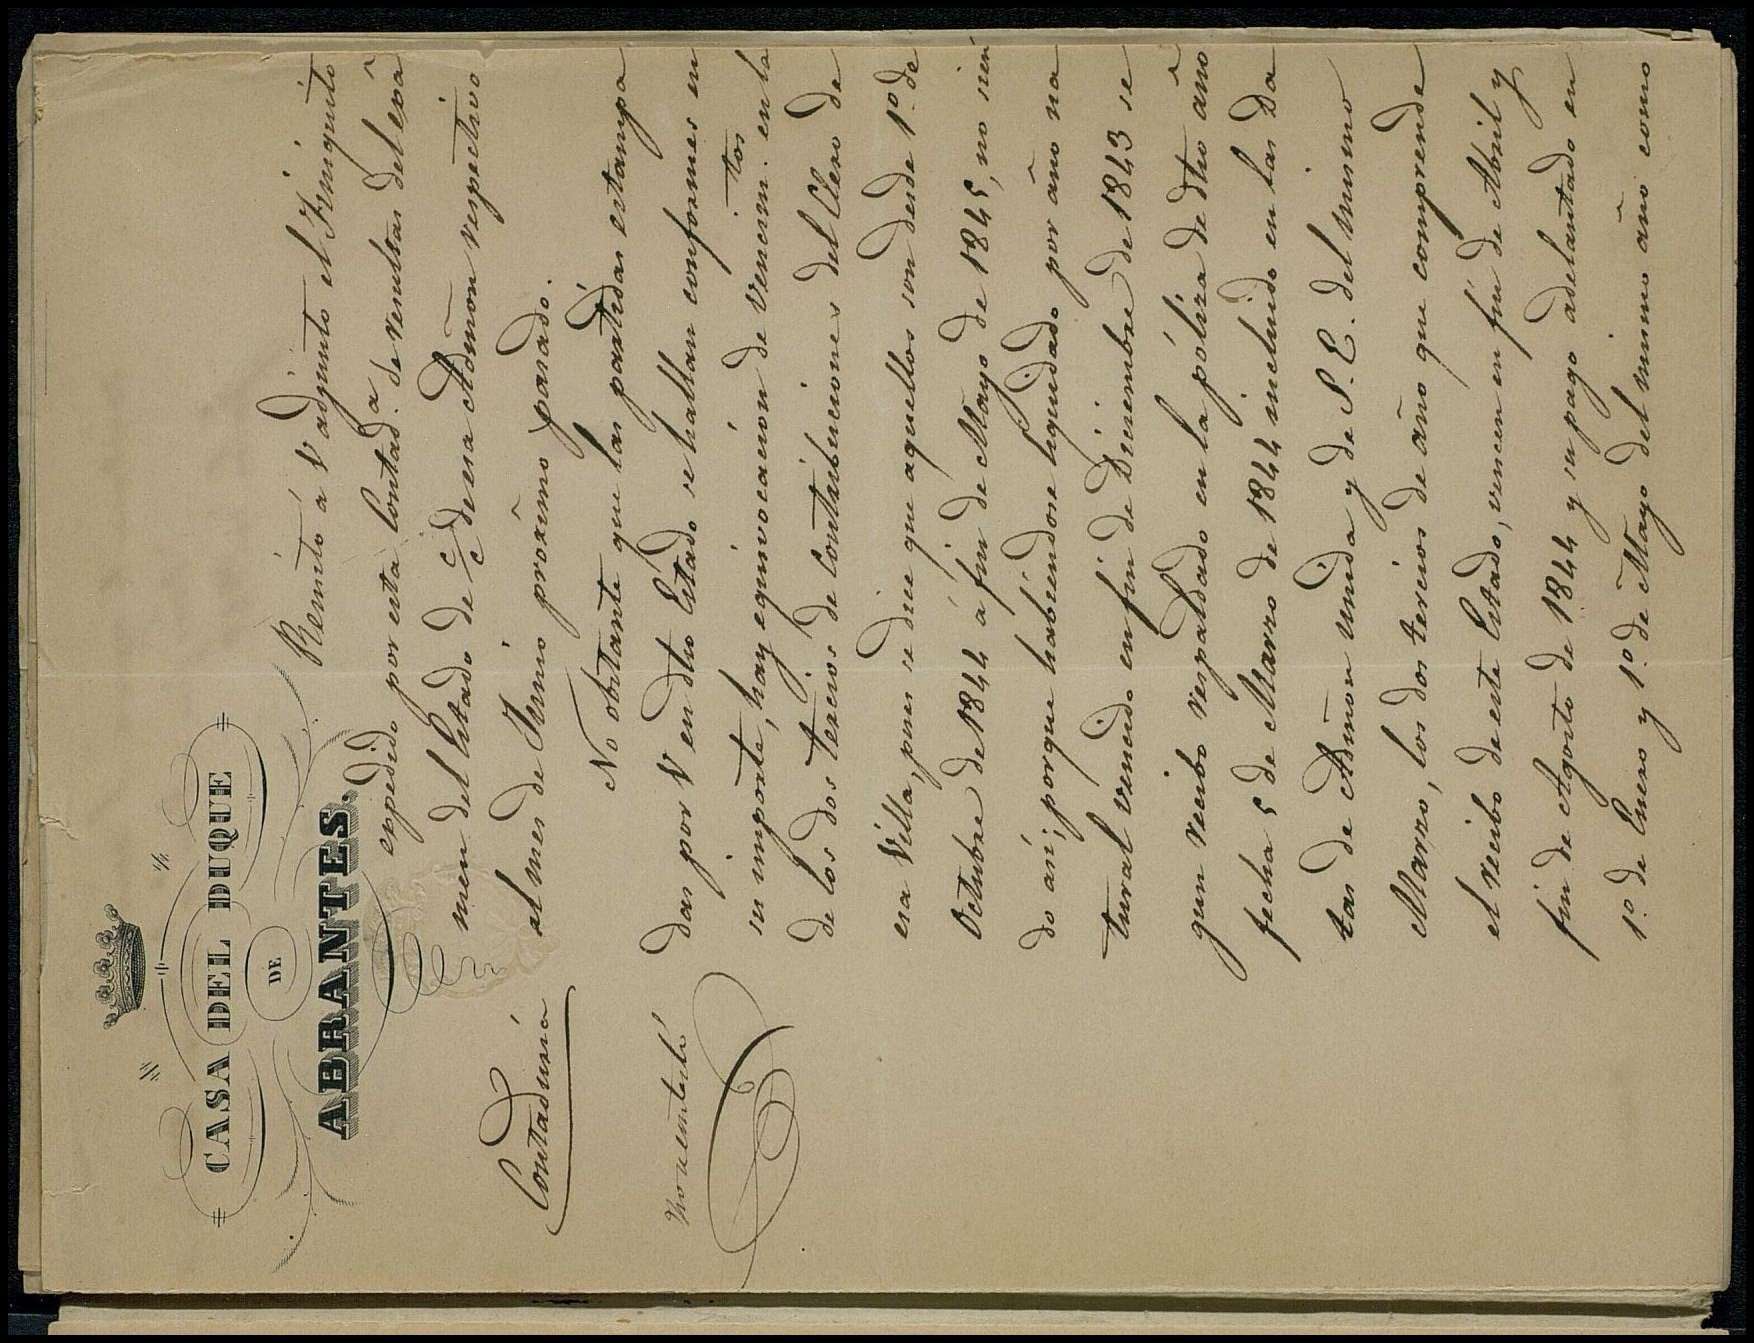 CASA DEL DUQUE
DE
ABRANTES.
Contaduría
Remito á V adjunto el Finiquito
expedido por esta Contad.ª de resultas del exâ
men del Estado de c/c de esa Admon respectivo
al mes de Junio proximo pasado.
No obstante que las partidas estampa
das por V en dho Estado se hallan conformes en
su importe, hay equivocacion de Vencim.tos en la
de los dos tercios de Contribuciones del Clero de
esa Villa, pues se dice que aquellos son desde 1º de
Octubre de 1844 á fin de Mayo de 1845, no sien
do asi; porque habiendose liquidado por año na
tural vencido en fin de Diciembre de 1843 se
gun recibo respaldado en la póliza de dho año
fecha 5 de Marzo de 1844 incluido en las Da
tas de Admon unida y de S. E. del mismo
Marzo, los dos tercios de año que comprende
el recibo de este Estado, vencen en fin de Abril y
fin de Agosto de 1844 y su pago adelantado en
1º de Enero y 1º de Mayo del mismo año como